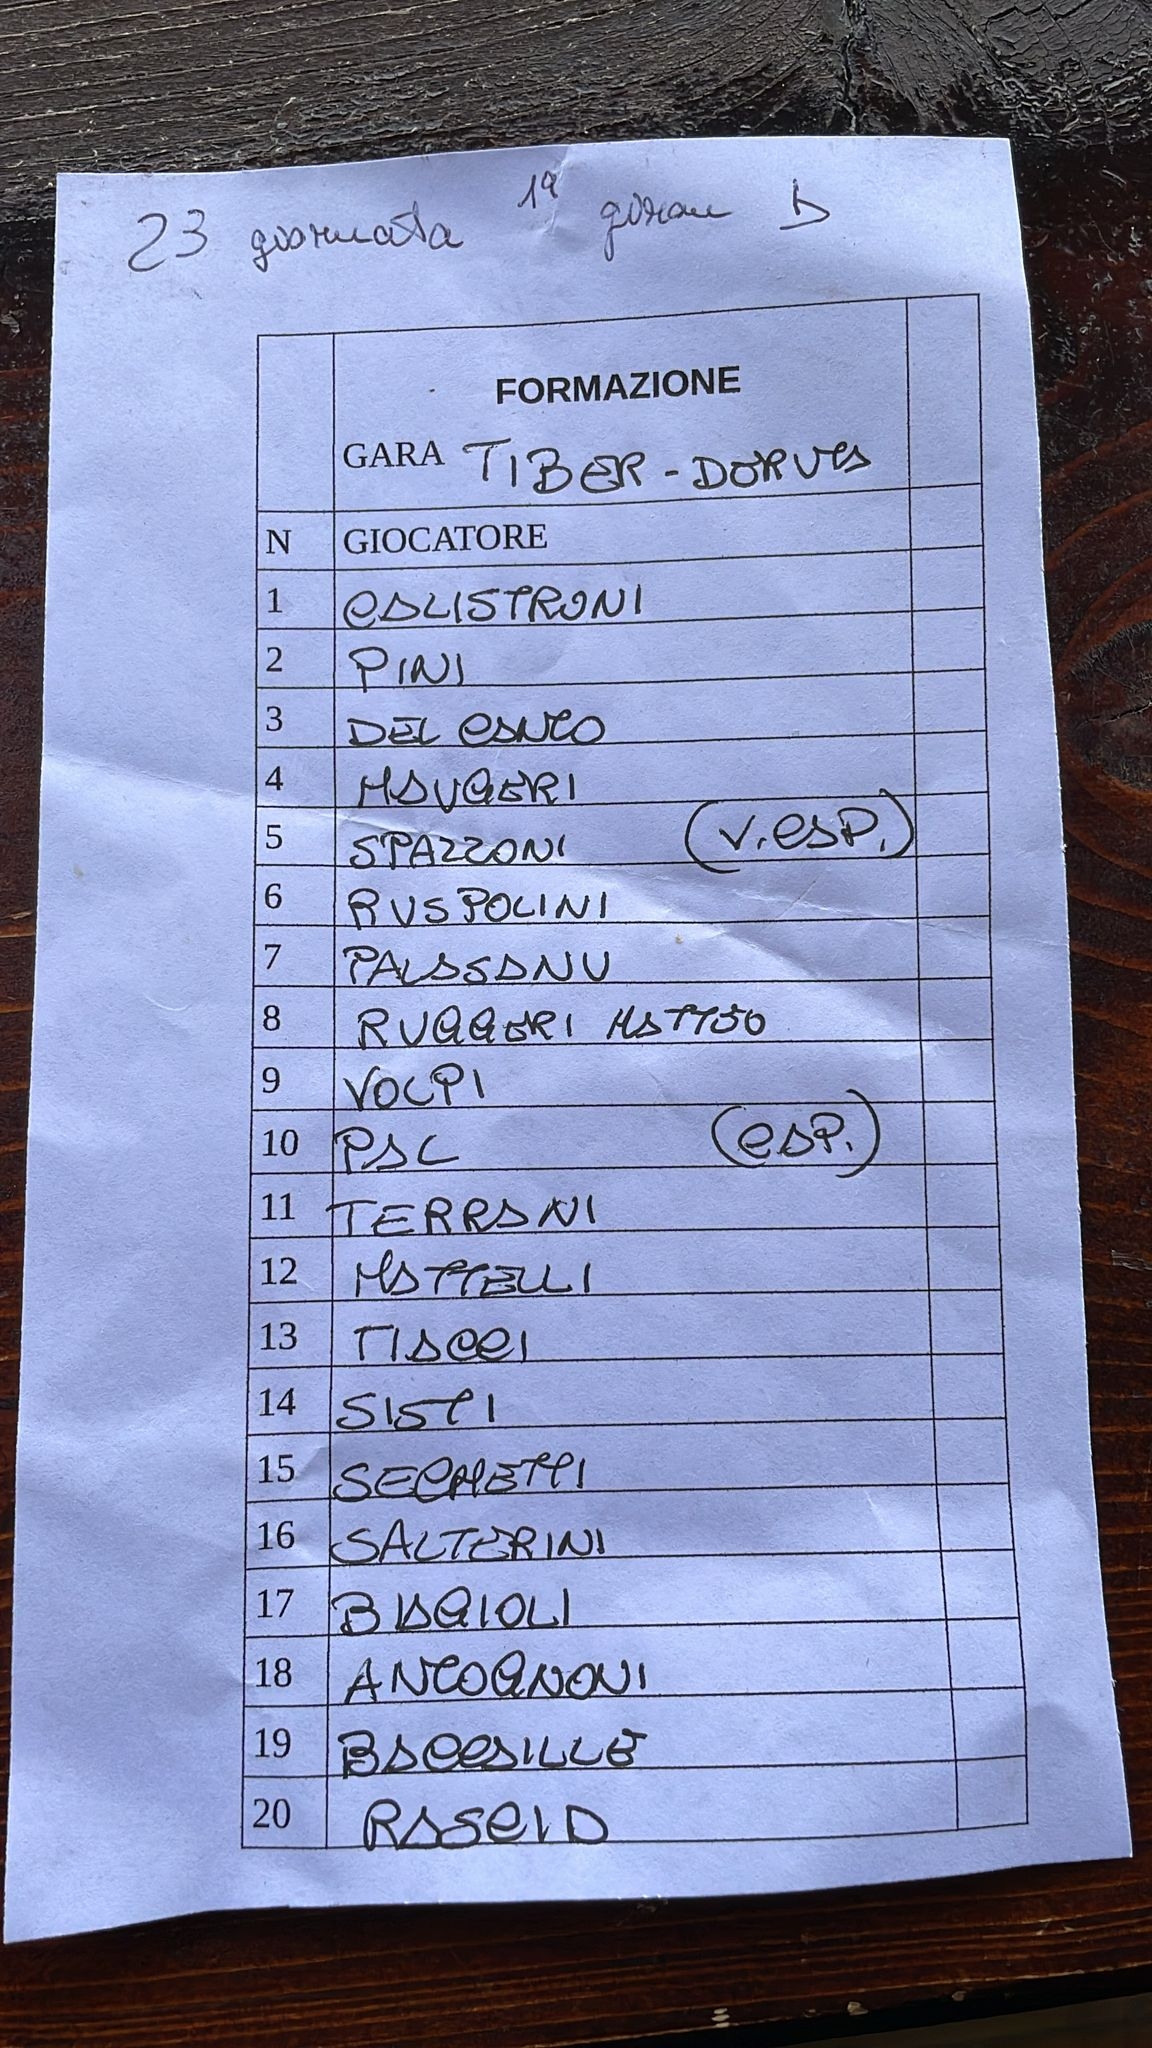 23 giornata 1ª giron D
FORMAZIONE
GARA TIBER - DORVA
N GIOCATORE
1 CALISTRONI
2 PINI
3 DEL CANTO
4 MAUGERI
5 SPAZZONI (V. CAP.)
6 RUSPOLINI
7 PALASSANU
8 RUGGERI MATTEO
9 VOLPI
10 PAL (CAP.)
11 TERRANI
12 MATTELLI
13 TIACCI
14 SISTI
15 SECHETTI
16 SALTERINI
17 BIAGIOLI
18 ANCOGNONI
19 BACCAILLE
20 RASCID